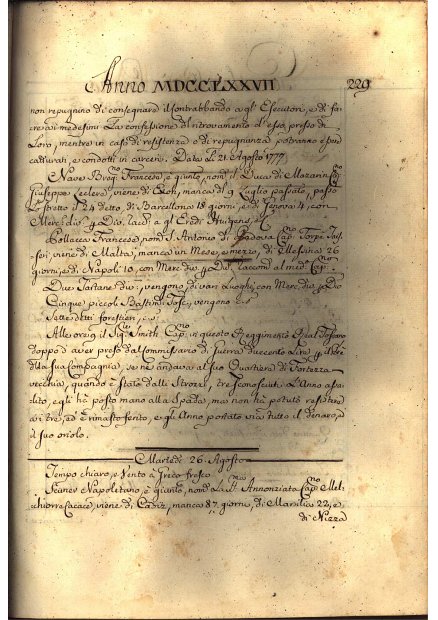 Anno MDCCLXXVII 229
non repugnino di consegnare il contrabbando a gl' Esecutori, e di fa-
re a i medesimi la confessione del ritrovamento d'esso presso di
Loro, mentre in caso di resistenza o di repugnanza potranno esser
catturati, e condotti in carcere. Data li 21. Agosto 1777.
Nave Francese, è giunto, nom.
Giuseppe viene di manca dal 9 Luglio passato, passò
lo stretto il 24 detto, di Barcellona 18 giorni, e di Genova 4, con
Merc. a gl' Eredi Huigens,
Pollacca Francese, nom. S. Antonio di Padova Cap.
viene di Malta, manca un Mese, e mezzo, di Messina 26
giorni, e di Napoli 10, con Merc. al med. Cap.
Due Tartane vengono di vari Luoghi, con Merc.
Cinque piccoli Bastim. Tosc. vengono
Sette detti forestieri,
Alle ore 9 il Sig. Smith Cap. in questo Reggimento Real Toscano
doppo d' aver preso dal Commissario di Guerra duecento Lire
alla sua Compagnia, se ne andava al suo Quartiere di Fortezza
vecchia, quando è stato dalli Strozzi, tre sconosciuti L' Anno assa-
lito, egli hà posto mano alla Spada, ma non hà potuto resistere
a i tre, ed è rimasto ferito, e gli Anno portato via tutto il denaro, e
il suo oriolo.
Martedì 26. Agosto
Tempo chiaro, e Vento à Greco fresco
Napolitano, è giunto, nom. La SS. Annonziata Cap. Mel-
chiorra Cacace, viene di Cadiz, manca 87 giorni, di Marsilia 22, e
di Nizza